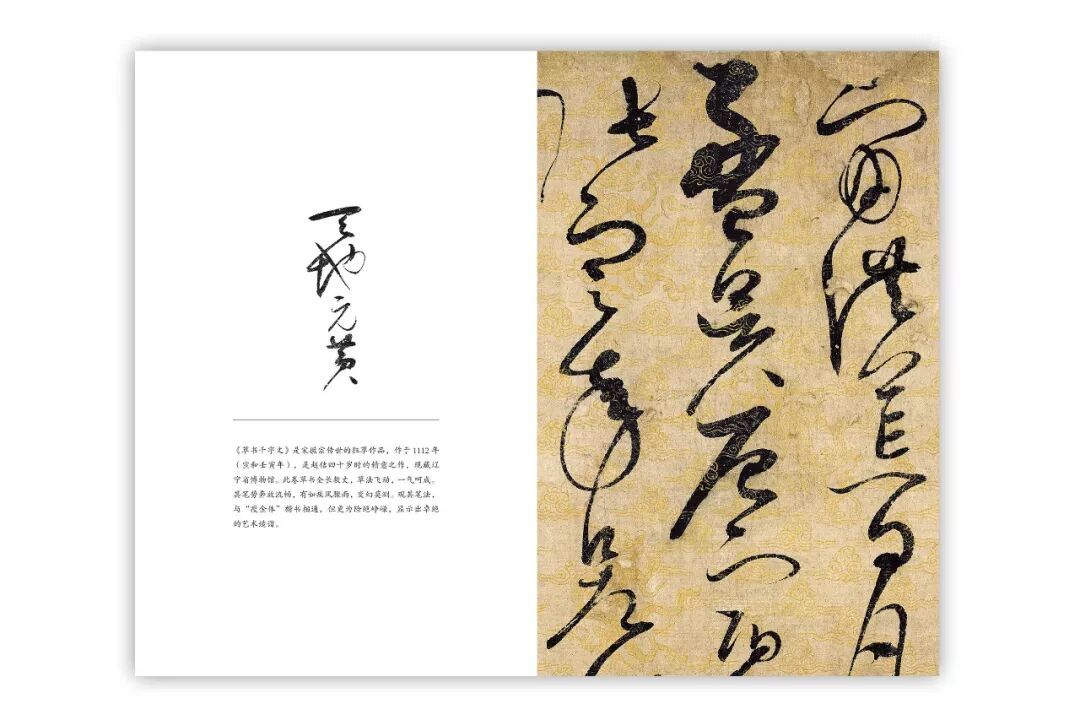 天地元黄
《草书千字文》是宋徽宗传世的狂草作品，作于1112年
（宣和壬寅年），是赵佶四十岁时的精意之作，现藏辽
宁省博物馆。此卷草书全长数丈，草法飞动，一气呵成。
其笔势奔放流畅，有如疾风骤雨，变幻莫测。观其笔法，
与“瘦金体”楷书相通，但更为险绝峥嵘，显示出卓绝
的艺术造诣。
宙洪荒日月
盈昃辰宿
张寒来暑